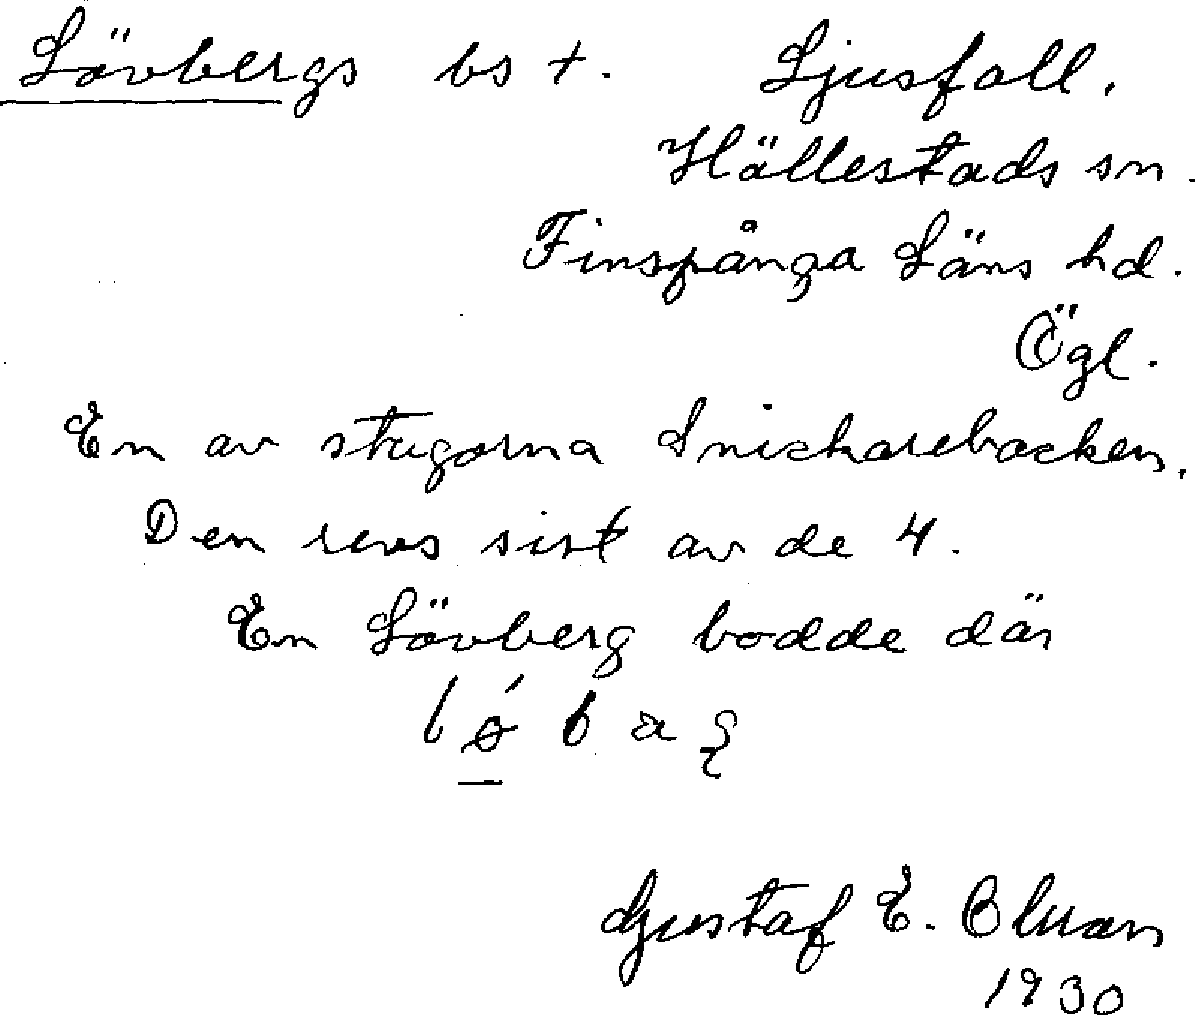 Lövbergs bs †. Ljusfall.
Hällestads sn.
Finspånga Läns hd.
Ögl.
En av stugorna Snickarebacken.
Den revs sist av de 4.
En Lövberg bodde där
Gustaf E.
1930